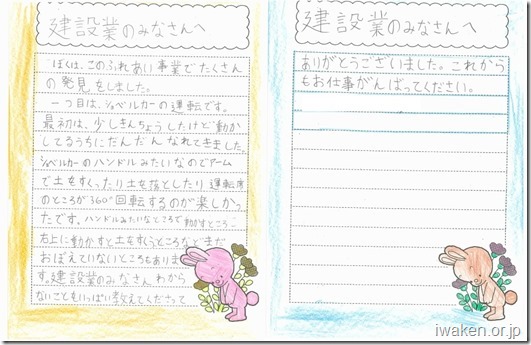 建設業のみなさんへ
ぼくは、このふれあい事業でたくさん
の発見をしました。
一つ目は、ショベルカーの運転です。
最初は、少しきんちょうしたけど動か
してるうちにだんだんなれてきました。
ショベルカーのハンドルみたいなのでアーム
で土をすくったり土を落としたり運転席
のところが360°回転するのが楽しかっ
たです。ハンドルみたいなところで動かすところ
右上に動かすと土をすくうところなどまだ
おぼえていないところもありま
す。建設業のみなさんわから
ないこともいっぱい教えてくださって
建設業のみなさんへ
ありがとうございました。これから
もお仕事がんばってください。
iwaken.or.jp